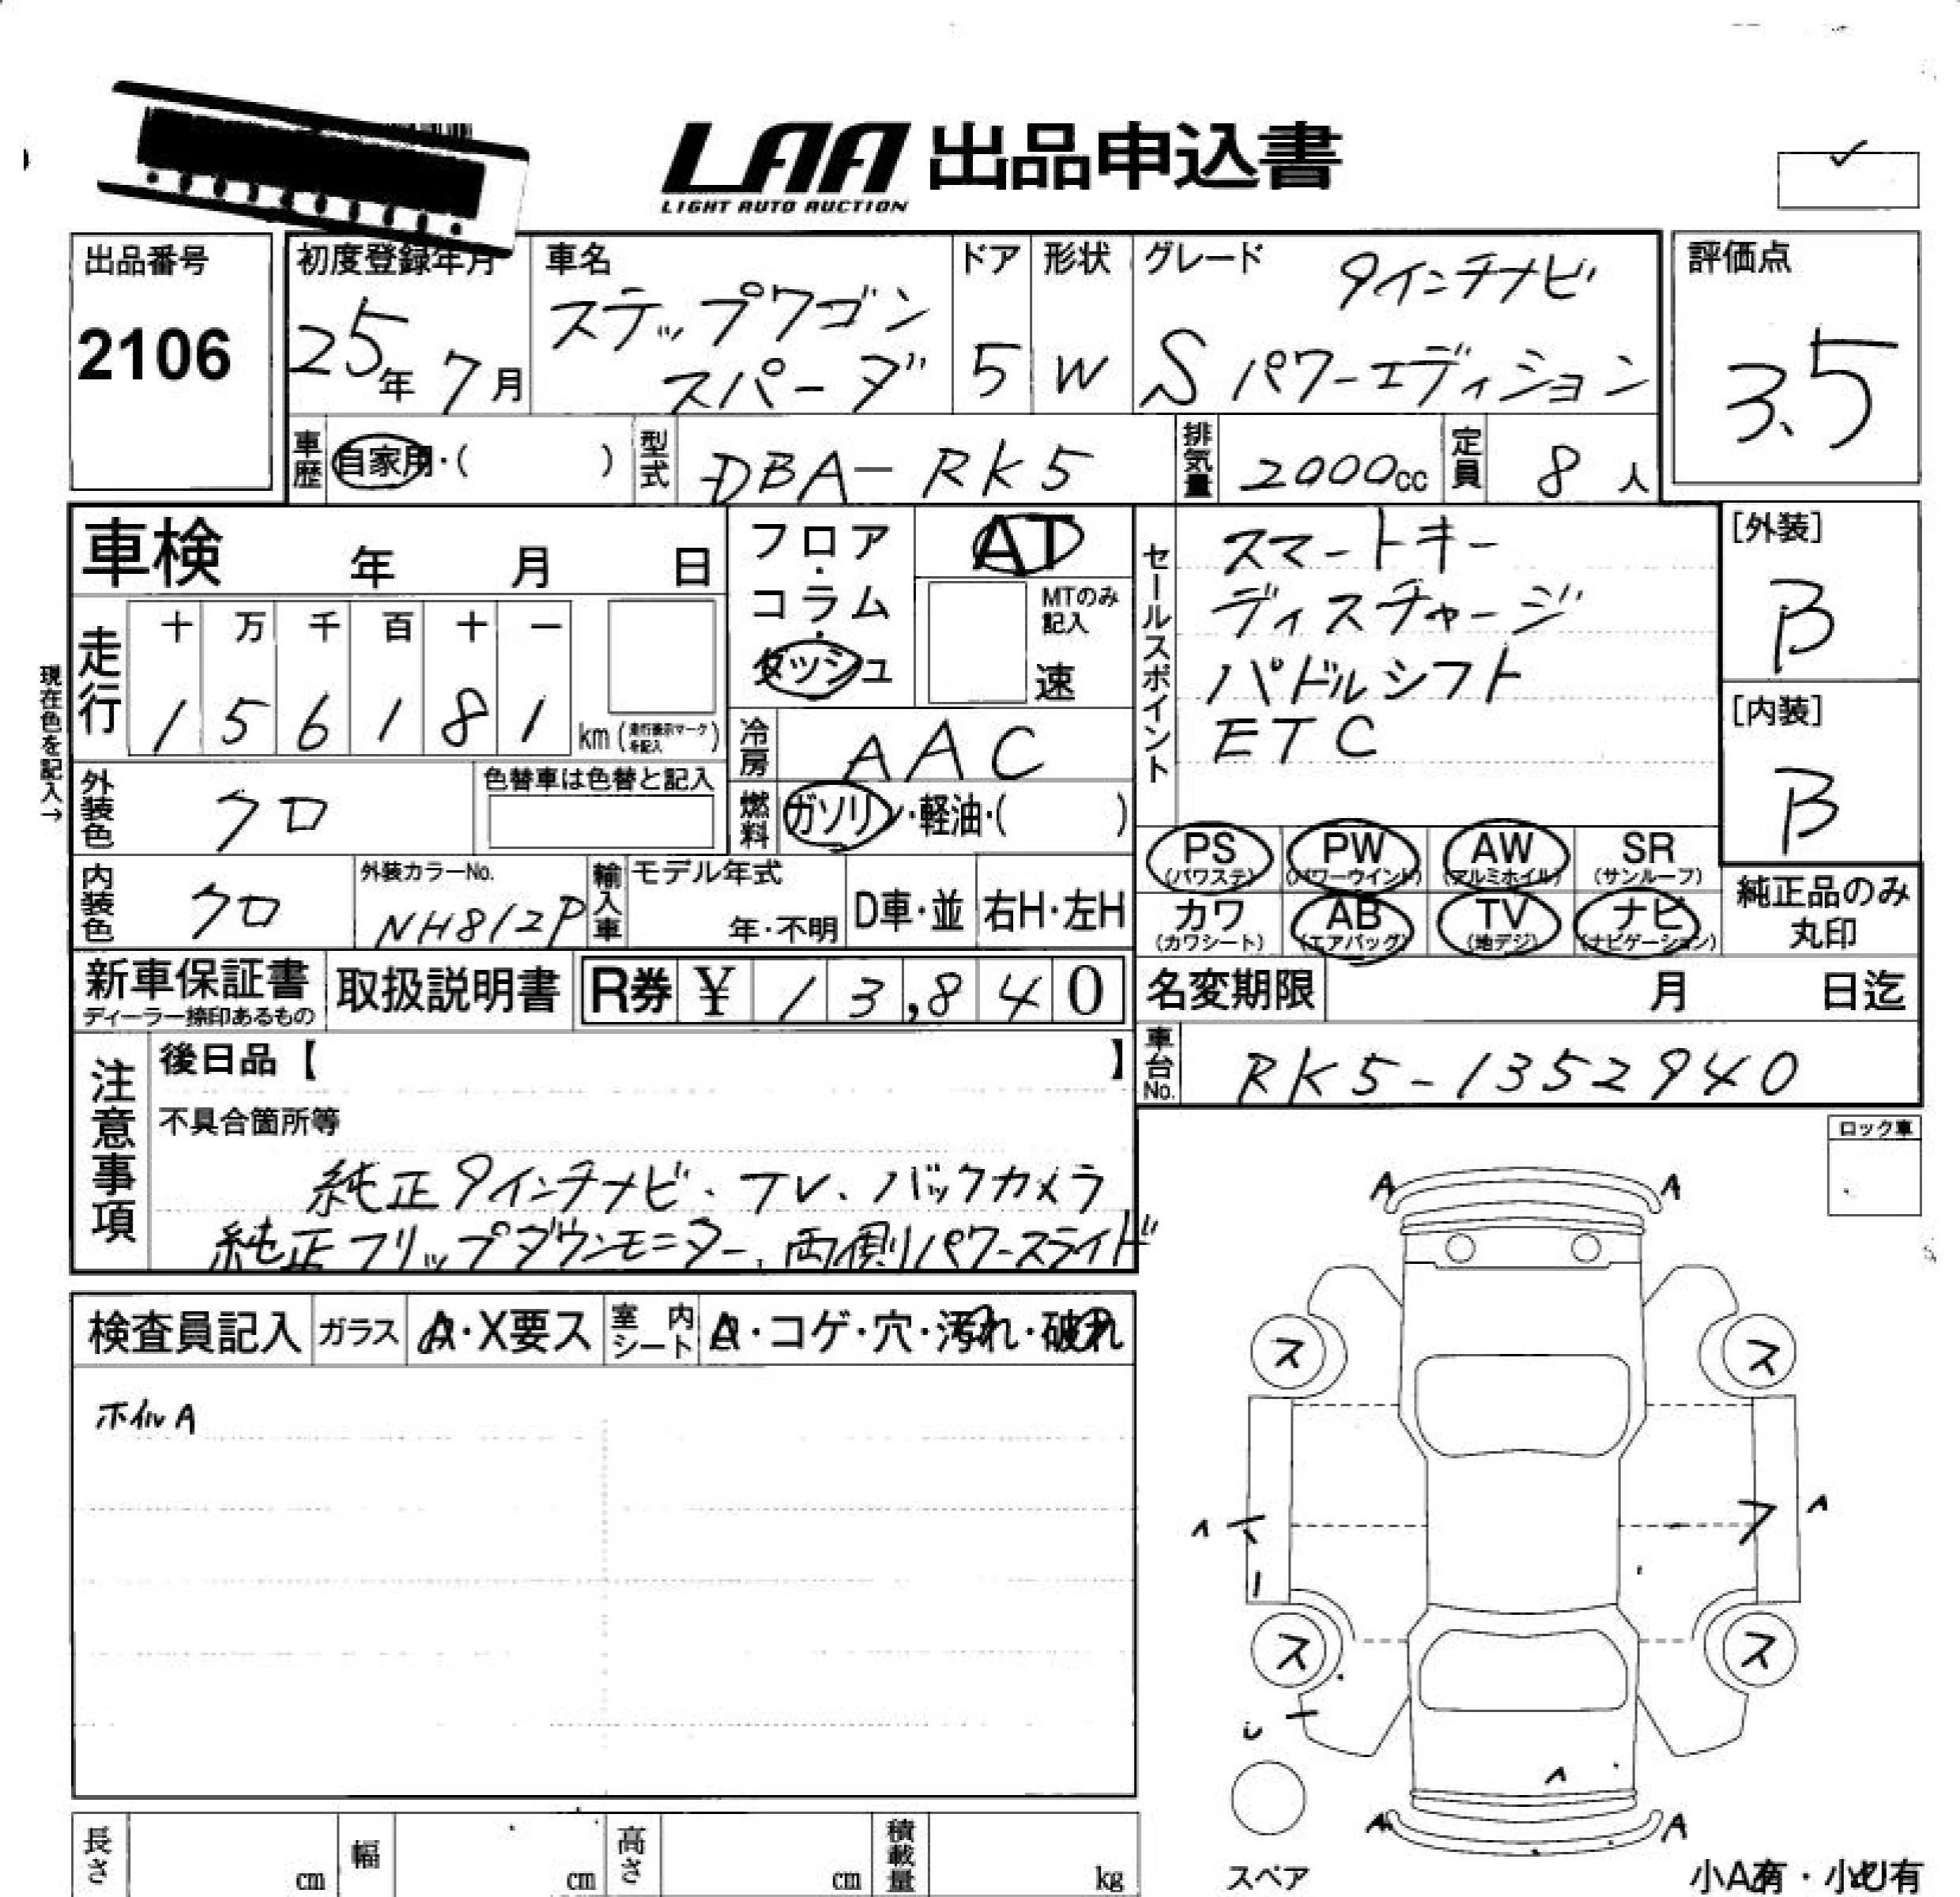 LAA 出品申込書
LIGHT AUTO AUCTION
出品番号
2106
初度登録年月
25年 7月
車名
ステップワゴン
スパーダ
ドア
5
形状
W
グレード
9インチナビ
S パワーエディション
評価点
3.5
車歴
自家用・( )
型式
DBA-RK5
排気量
2000cc
定員
8人
車検 年 月 日
走行
十 万 千 百 十 一
1 5 6 1 8 1 km (走行表示マークを記入)
現在色を記入→
フロア・
コラム・
ダッシュ
AT
MTのみ
記入
速
冷房
AAC
燃料
ガソリン・軽油・( )
セールスポイント
スマートキー
ディスチャージ
パドルシフト
ETC
[外装]
B
[内装]
B
外装色
クロ
色替車は色替と記入
内装色
クロ
外装カラーNo.
NH812P
輸入車
モデル年式
年・不明
D車・並
右H・左H
PS
(パワステ)
PW
(パワーウインド)
AW
(アルミホイル)
SR
(サンルーフ)
カワ
(カワシート)
AB
(エアバッグ)
TV
(地デジ)
ナビ
(ナビゲーション)
純正品のみ
丸印
新車保証書
ディーラー捺印あるもの
取扱説明書
R券 ¥ 13,840
名変期限 月 日迄
車台No.
RK5-1352940
注意事項
後日品【 】
不具合箇所等
純正9インチナビ、TV、バックカメラ
純正フリップダウンモニター、両側パワースライド
ロック車
検査員記入
ガラス
A・X要ス
室内シート
A・コゲ・穴・汚れ・破れ
ホイルA
A A
ス ス
ス ス
A A
スペア
小A有・小U有
長さ cm
幅 cm
高さ cm
積載量 kg